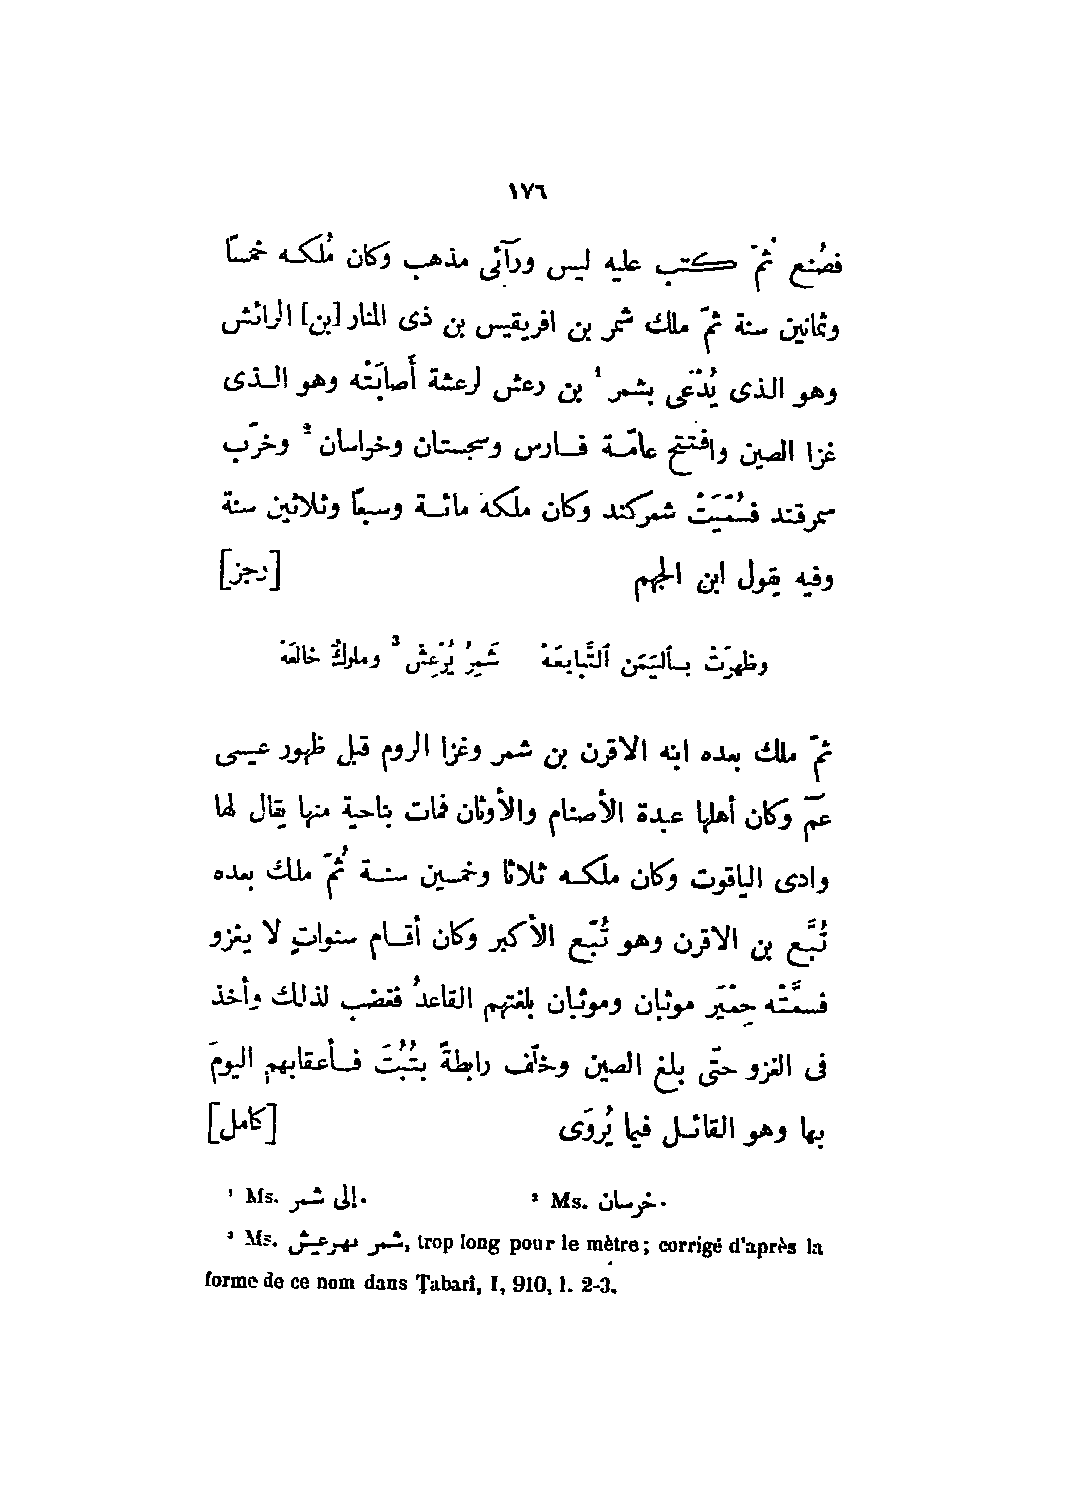 ١٧٦
فصُنع ثُمّ كتب عليه ليس ورآئى مذهب وكان مُلكه خمسًا
وثمانين سنة ثمّ ملك شمر بن افريقيس بن ذى المنار [بن] الرائش
وهو الذى يُدْعَى بشمر ¹ بن رعش لرعشة أَصابَتْه وهو الذى
غزا الصين وافتتح عامّة فارس وسجستان وخراسان ² وخرّب
سمرقند فسُمّيَتْ شمركند وكان ملكه مائة وسبعًا وثلاثين سنة
وفيه يقول ابن الجهم [رجز]
وظهرَتْ بٱليَمَن ٱلتَّبابِعَهْ شَمِرُ يُرْعِش ³ وملوكٌ خالَعَهْ
ثمّ ملك بعده ابنه الاقرن بن شمر وغزا الروم قبل ظهور عيسى
عمّ وكان أهلها عبدة الأصنام والأوثان فمات بناحية منها يقال لها
وادى الياقوت وكان ملكه ثلاثا وخمسين سنة ثُمّ ملك بعده
تُبَّع بن الاقرن وهو تُبّع الأكبر وكان أقام سنواتٍ لا يغزو
فسمَّتْه حِمْيَر موثبان وموثبان بلغتهم القاعدُ فغضب لذلك وأخذ
فى الغزو حتّى بلغ الصين وخلّف رابطةً بتُبُتَ فأعقابهم اليومَ
بها وهو القائل فيما يُروَى [كامل]
¹ Ms. إلى شمر.
² Ms. خرسان.
³ Ms. شمر بهرعيش, trop long pour le mètre; corrigé d'après la
forme de ce nom dans Ṭabarî, I, 910, l. 2-3.